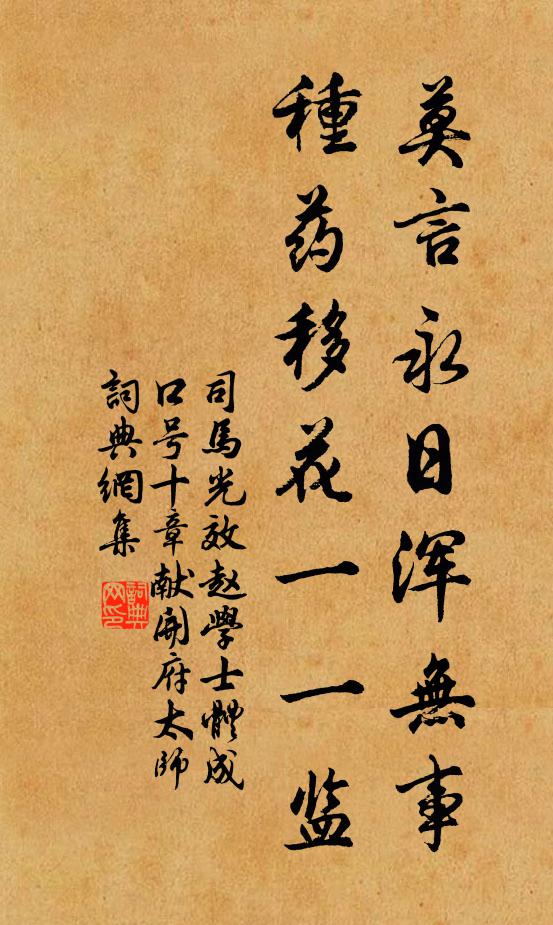 莫言永日浑無事
種药移花一一监
司馬光效赵學士體成
口号十章献开府太師
詞典網集
詞典网印